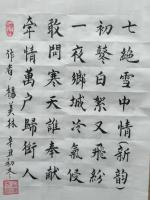 七絕雪中情新韻
初鼕白絮又飛紛
一夜鄉城冷氣侵
敢問寒天誰奉獻
牽情萬戶掃街人
作者楊美林辛丑初冬